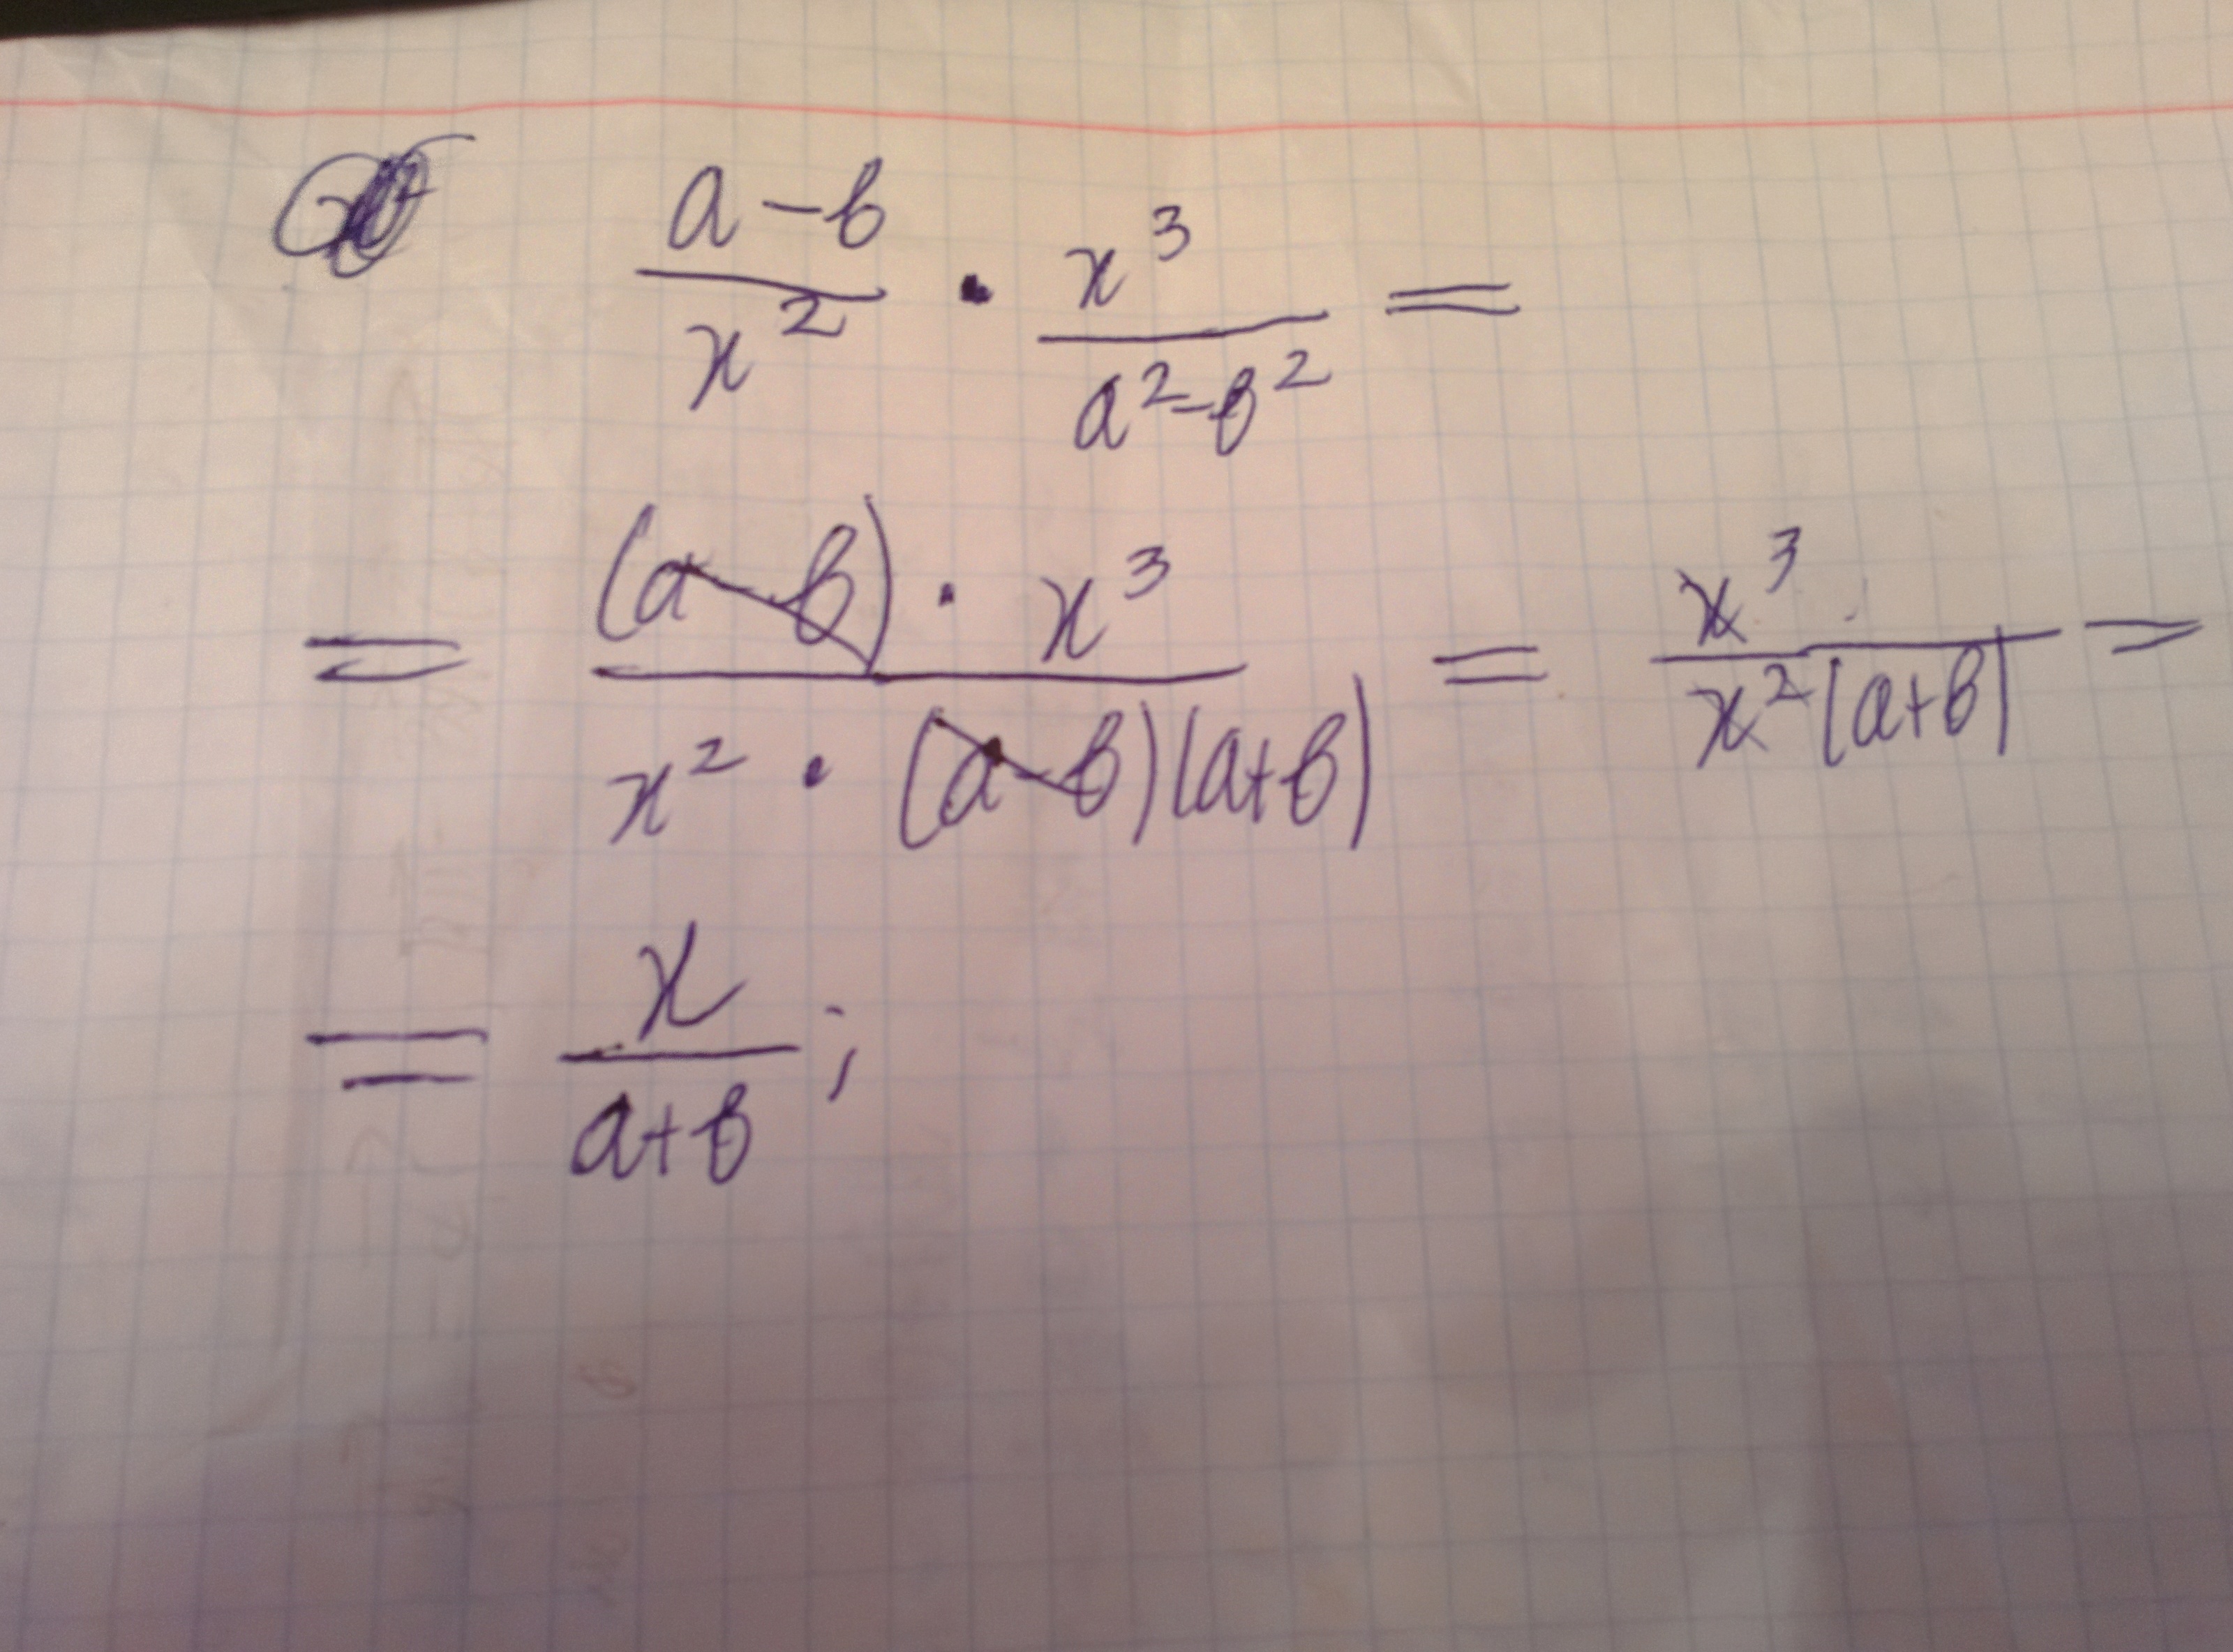 (a-b)/x² · x³/(a²-b²) =
= ((a-b) · x³)/(x² · (a-b)(a+b)) = x³/(x²(a+b)) =
= x/(a+b);